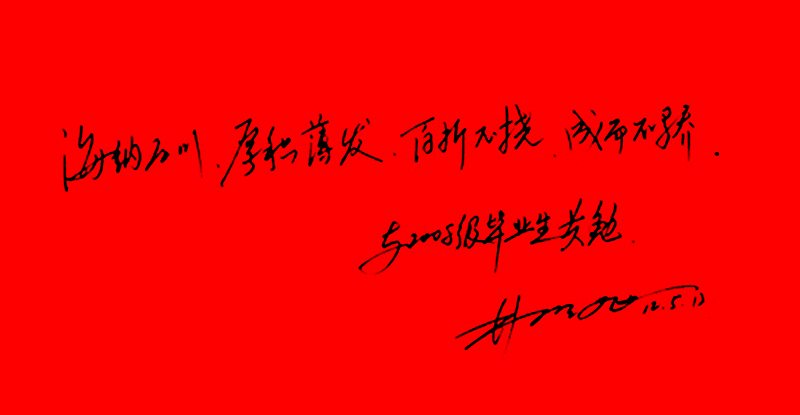 海纳百川、厚积薄发、百折不挠、成而不骄.
与2008级毕业生共勉.
12.5.13